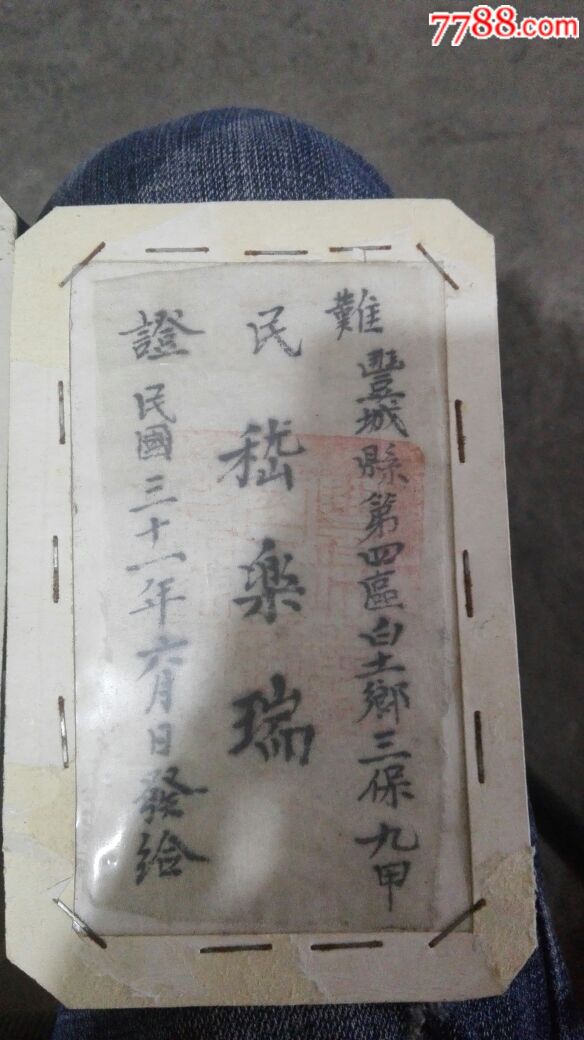 7788.com
難 豐城縣第四區白土鄉三保九甲
民 嵇樂瑞
證 民國三十一年六月日發給